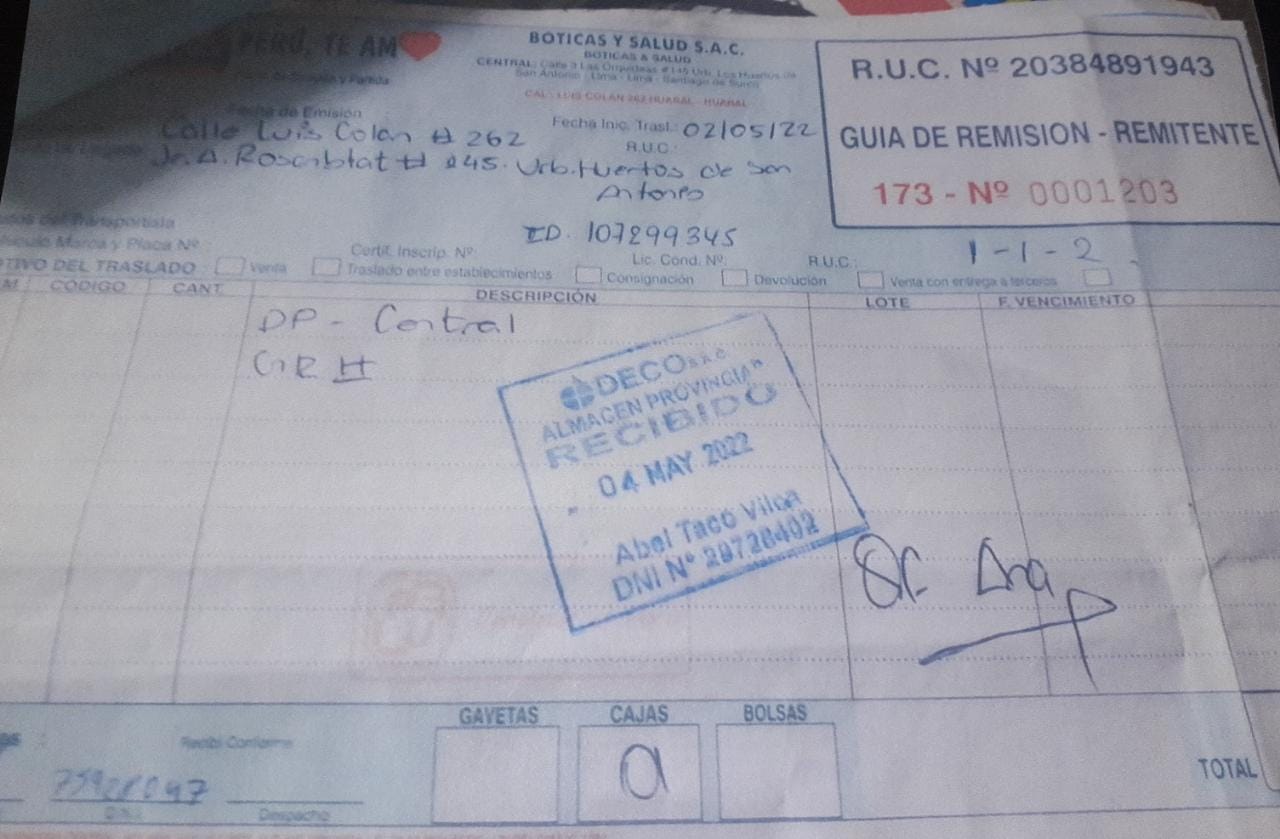 PERÚ, TE AM
BOTICAS Y SALUD S.A.C.
BOTICAS & SALUD
CENTRAL: Calle 3 Las Orquídeas # 145 Urb. Los Huertos de
San Antonio - Lima - Lima - Santiago de Surco
CAL. LUIS COLAN 262 HUARAL - HUARAL
R.U.C. Nº 20384891943
GUIA DE REMISION - REMITENTE
173 - Nº 0001203
Fecha de Emisión
Fecha Inic. Trasl.: 02/05/22
Calle Luis Colan # 262
R.U.C.:
Jr. A. Rosenblat # 245. Urb. Huertos de San
Antonio
Datos del Transportista
ID. 107299345
Vehículo Marca y Placa Nº
Certif. Inscrip. Nº:
Lic. Cond. Nº:
R.U.C.:
1-1-2
TIVO DEL TRASLADO: Venta Traslado entre establecimientos Consignación Devolución Venta con entrega a terceros
CÓDIGO CANT. DESCRIPCIÓN LOTE F. VENCIMIENTO
DP - Central
DECO S.A.C.
ALMACEN PROVINCIA
RECIBIDO
04 MAY 2022
Abel Taco Vilca
DNI Nº 29726492
Ana
GAVETAS CAJAS BOLSAS
Recibí Conforme
TOTAL
Despacho